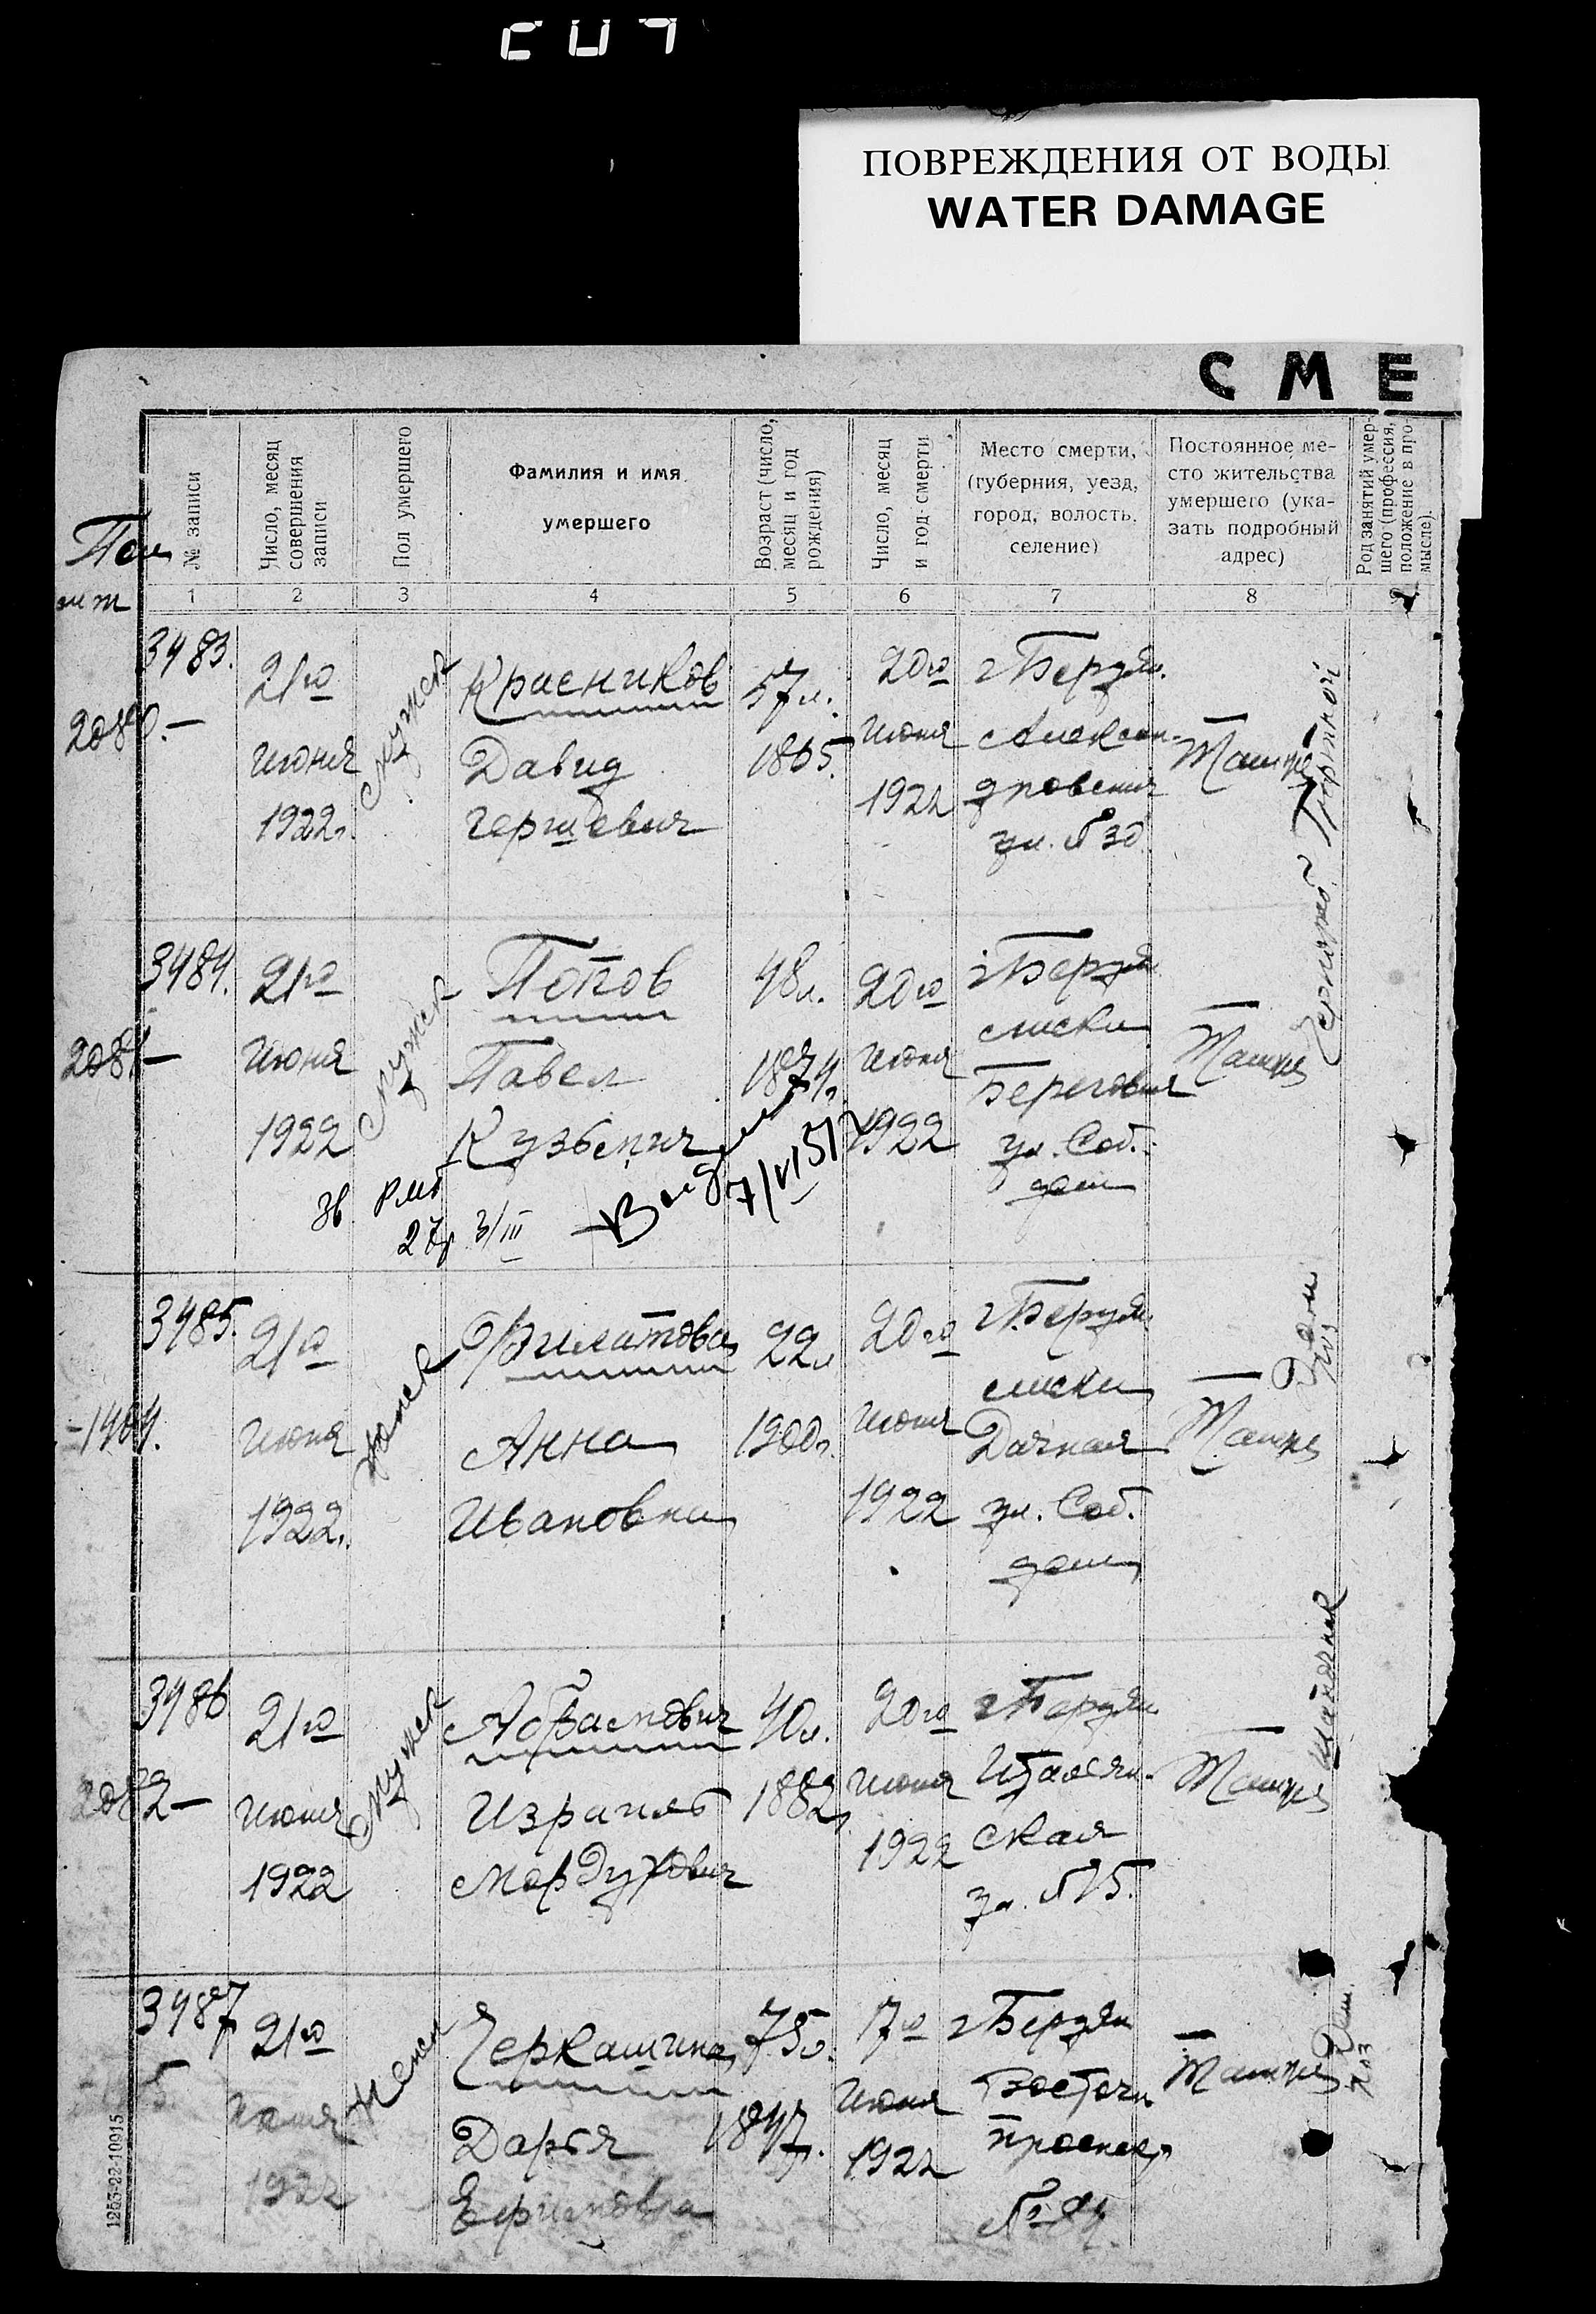 ПОВРЕЖДЕНИЯ ОТ ВОДЫ
WATER DAMAGE
СМЕ
№ записи
Число, месяц
совершения
записи
Пол умершего
Фамилия и имя
умершего
Возраст (число,
месяц и год
рождения)
Число, месяц
и год смерти
Место смерти,
(губерния, уезд,
город, волость,
селение)
Постоянное ме-
сто жительства
умершего (ука-
зать подробный
адрес)
Род занятий умер-
шего (профессия,
положение в про-
мысле).
1 2 3 4 5 6 7 8 9
3483.
2080.—
21го
июня
1922г.
Мужск
Красников
Давид
Гершевич
57л.
1865.
20го
июня
1922
г Бердян.
Алексан-
дровская
ул. № 30
3484.
2081—
21го
июня
1922
Мужск
Попов
Павел
Кузьмич
48л.
1874.
20го
июня
1922
г Бердя
Береговая
ул. Соб.
дом
27 3/III
7/VI 51
3485.
-1404.
21го
июня
1922.
Женск
Филатова
Анна
Ивановна
22л
1900г.
20го
июня
1922
г. Бердян.
Дачная
ул. Соб.
дом
Дом
хоз
3486
2082—
21го
июня
1922
Мужск
Абрамович
Израиль
Мордухович
40л.
1882
20го
июня
1922
г Бердян
Итальян-
ская
ул. № 15.
3487
21го
июня
1922
Женск
Черкашина
Дарья
Ефимовна
75л.
1847.
17го
июня
1922
г Бердян
Восточн
проспек
Дом.
хоз
1253-22-10915